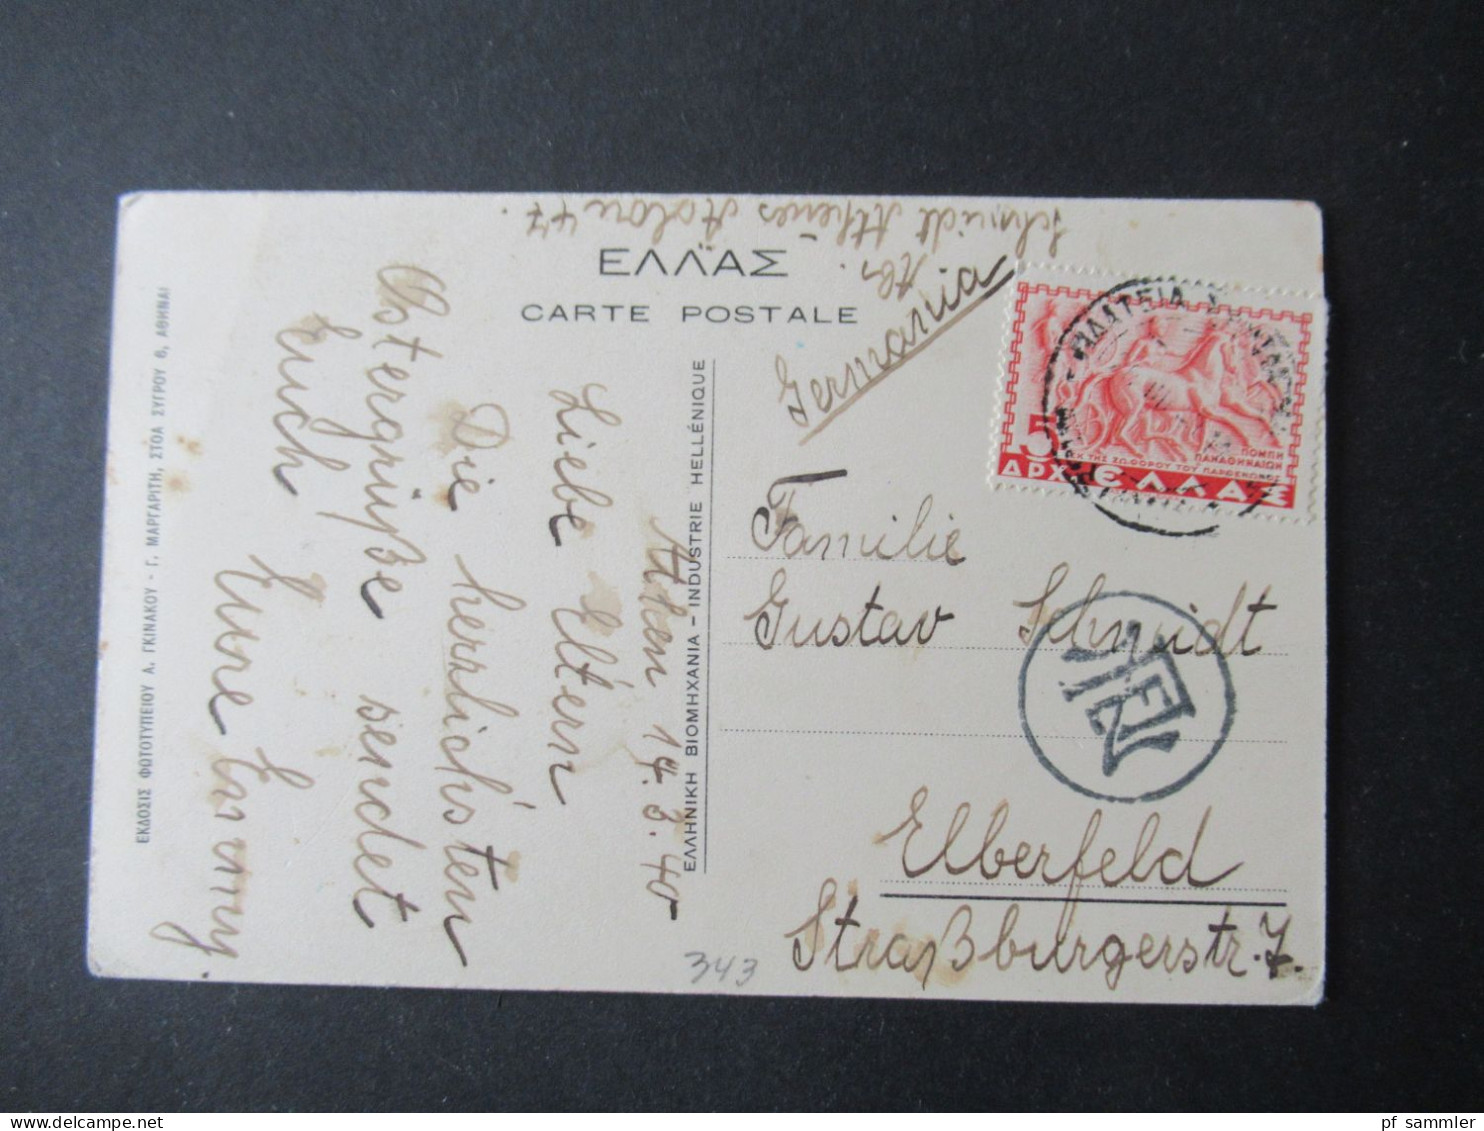 ΕΛΛΑΣ
CARTE POSTALE
Schmidt Athènes Aolou 47.
Germania
Familie
Gustav Schmidt
Elberfeld
Straßburgerstr. 7.
ΠΛΑΤΕΙΑ
5
ΠΟΜΠΗ
ΠΑΝΑΘΗΝΑΙΩΝ
ΕΚ ΤΗΣ ΖΩΦΟΡΟΥ ΤΟΥ ΠΑΡΘΕΝΩΝΟΣ
ΔΡΧ. ΕΛΛΑΣ
ΕΛΛΗΝΙΚΗ ΒΙΟΜΗΧΑΝΙΑ - INDUSTRIE HELLÉNIQUE
Athen 14.3.40
Liebe Eltern
Die herrlichsten
Ostergrüße sendet
Euch Eure
ΕΚΔΟΣΙΣ ΦΩΤΟΤΥΠΕΙΟΥ Α. ΓΚΙΝΑΚΟΥ - Γ. ΜΑΡΓΑΡΙΤΗ, ΣΤΟΑ ΣΥΓΡΟΥ 6, ΑΘΗΝΑΙ
343
pf sammler